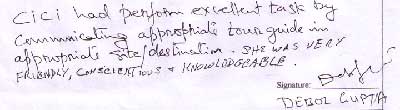 CiCi had perform excellent task by
communicating appropriate tour guide in
appropriate site/destination. SHE WAS VERY
FRIENDLY, CONSCIENTIOUS & KNOWLEDGEABLE.
Signature:
DEBOL GUPTA